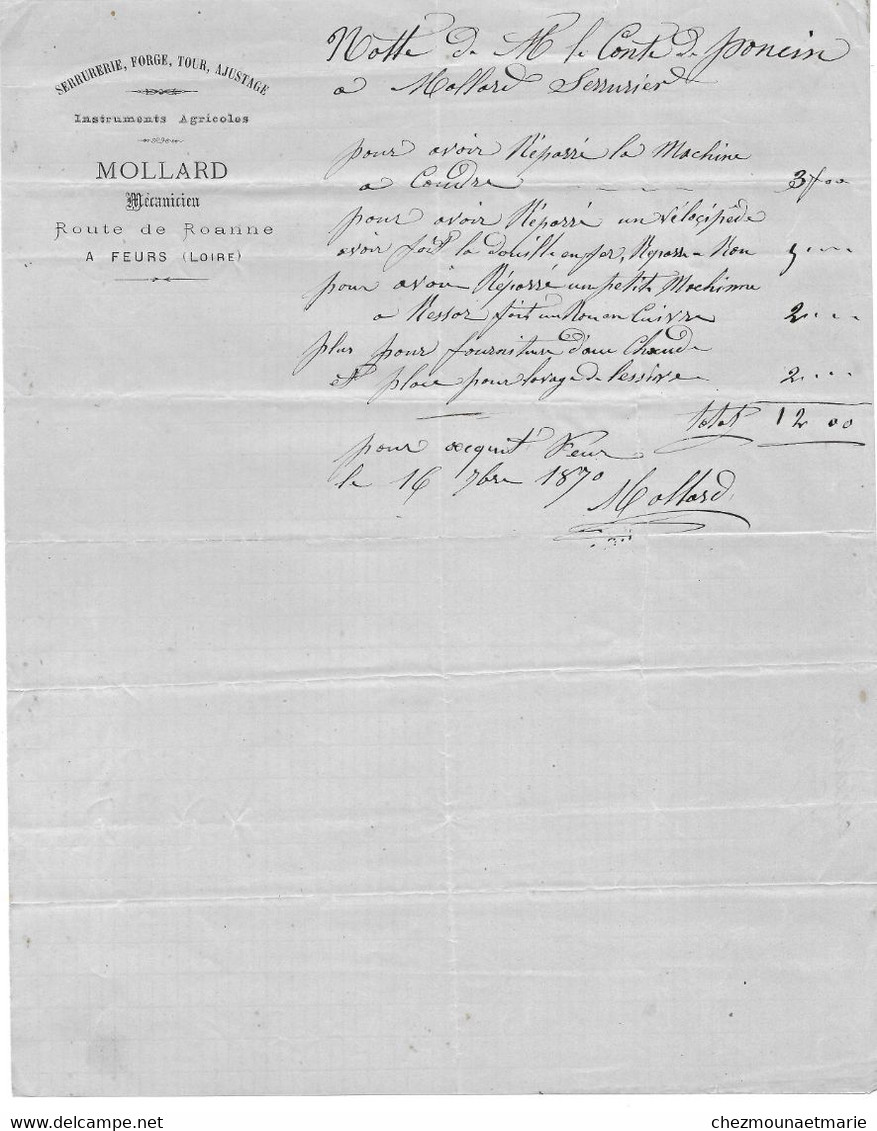 SERRURERIE, FORGE, TOUR, AJUSTAGE
Instruments Agricoles
MOLLARD
Mécanicien
Route de Roanne
A FEURS (LOIRE)
Notte de M le Conte de poncin
a Mollard Serrurier
pour avoir Réparré la Machine
a Coudre 3f00
pour avoir Réparré un vélocipède
avoir fait la douille en fer, Réparre a Rou 5
pour avoir Réparré un petite Machinne
a Ressor fait un Rou en Cuivre 2
plus pour fourniture d'une Chaude
et place pour lavage de lessive 2
total 12 00
pour acquit Feur
le 16 7bre 1870
Mollard
chezmounaetmarie.